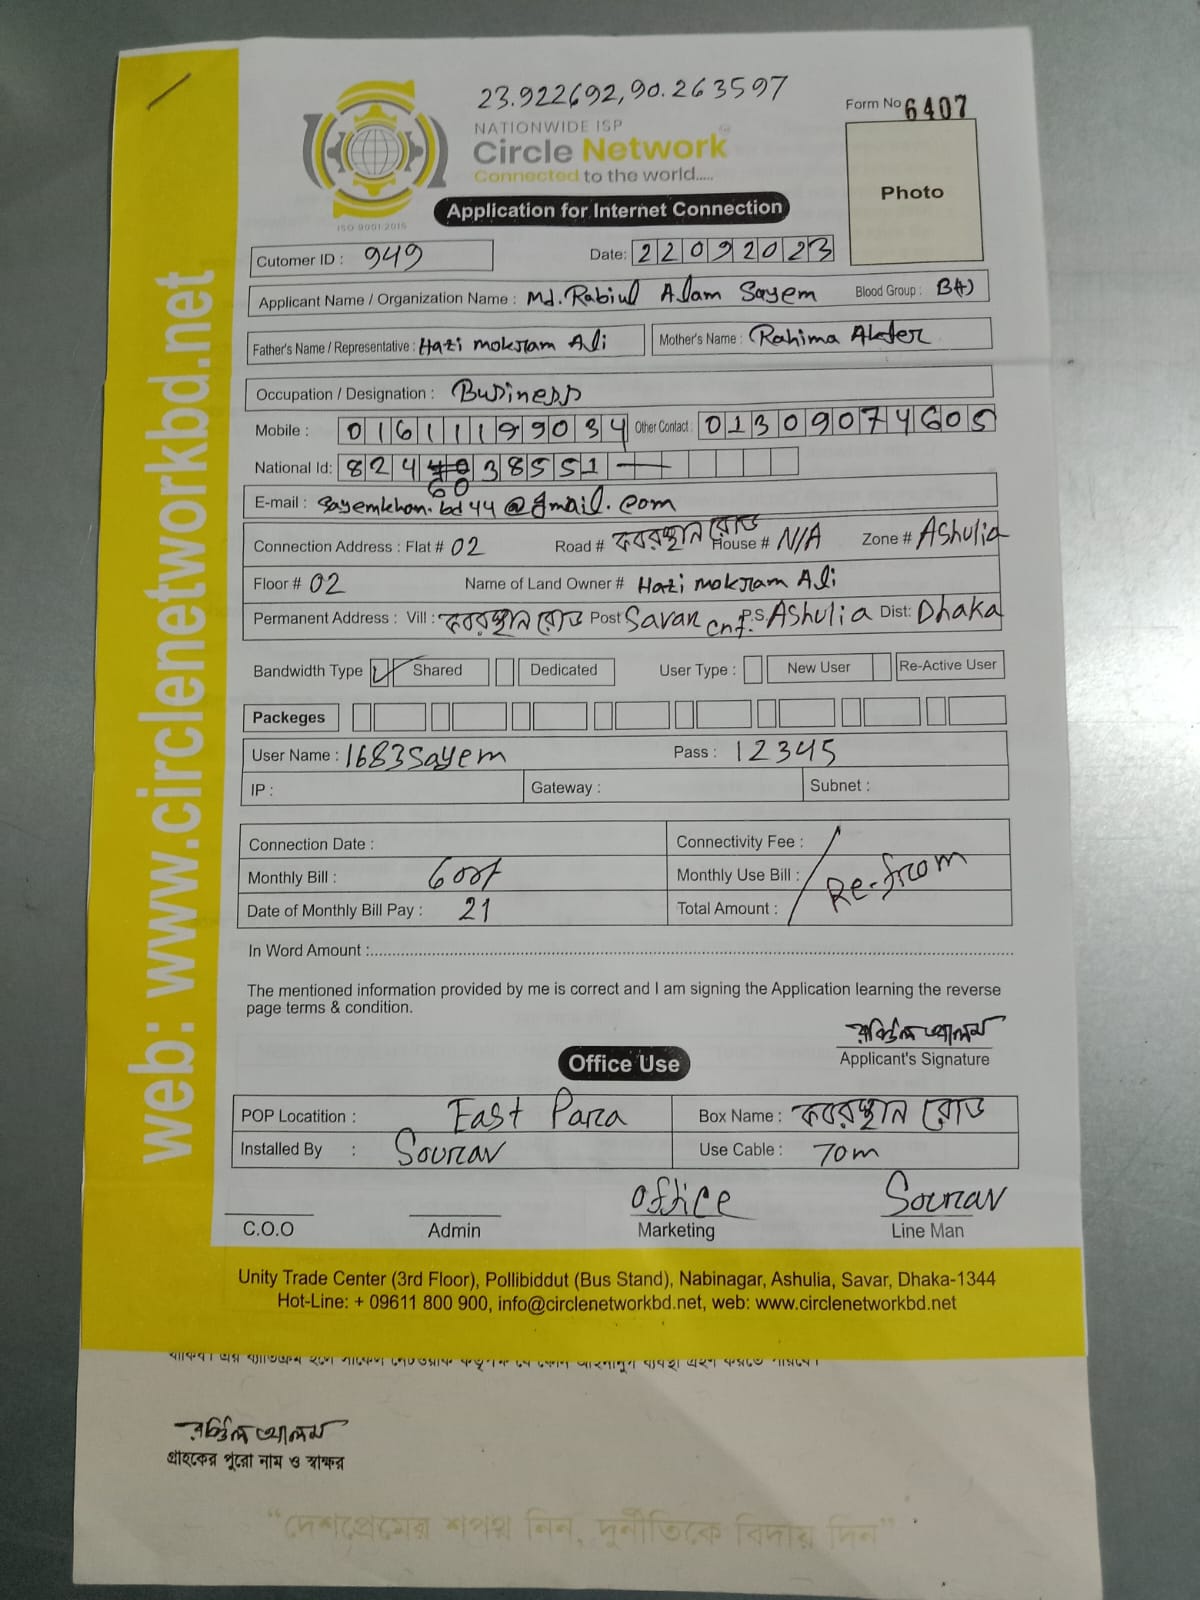 23.922692,90.263597
Form No 6407
NATIONWIDE ISP
Circle Network
Connected to the world.....
Photo
ISO 9001:2015
Application for Internet Connection
Cutomer ID : 949 Date: 22092023
Applicant Name / Organization Name : Md. Rabiul Alam Sayem Blood Group : B(+)
Father's Name / Representative : Hazi mokram Ali Mother's Name : Rahima Akter
Occupation / Designation : Business
Mobile : 01611199034 Other Contact : 01309074605
National Id: 824 38551
60
E-mail : sayemkhan.bd44@gmail.com
Connection Address : Flat # 02 Road # কবরস্থান রোড House # N/A Zone # Ashulia
Floor # 02 Name of Land Owner # Hazi mokram Ali
Permanent Address : Vill : কবরস্থান রোড Post Savar Cnt. P.S. Ashulia Dist: Dhaka
Bandwidth Type Shared Dedicated User Type : New User Re-Active User
Packeges
User Name : 1683sayem Pass : 12345
IP : Gateway : Subnet :
Connection Date : Connectivity Fee :
Monthly Bill : 600/ Monthly Use Bill : Re-from
Date of Monthly Bill Pay : 21 Total Amount :
In Word Amount :
The mentioned information provided by me is correct and I am signing the Application learning the reverse
page terms & condition.
রবিউল আলম
Applicant's Signature
Office Use
POP Locatition : East Para Box Name : কবরস্থান রোড
Installed By : Sourav Use Cable : 70m
office Sourav
C.O.O Admin Marketing Line Man
Unity Trade Center (3rd Floor), Pollibiddut (Bus Stand), Nabinagar, Ashulia, Savar, Dhaka-1344
Hot-Line: + 09611 800 900, info@circlenetworkbd.net, web: www.circlenetworkbd.net
web: www.circlenetworkbd.net
রবিউল আলম
গ্রাহকের পুরো নাম ও স্বাক্ষর
“দেশপ্রেমের শপথ নিন, দুর্নীতিকে বিদায় দিন”